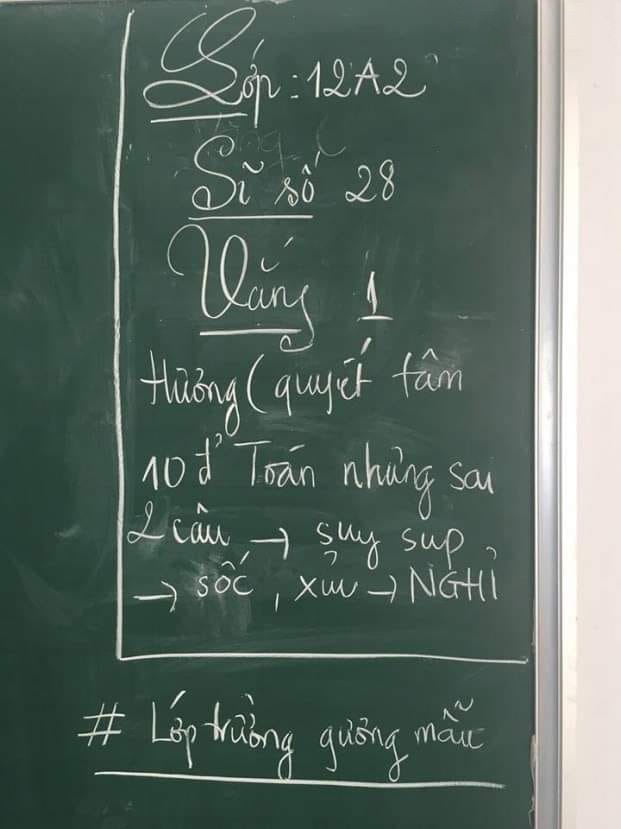 Lớp: 12A2
Sĩ số 28
Vắng 1
Hương (quyết tâm
10đ Toán nhưng sai
2 câu → suy sụp
→ sốc, xỉu → NGHỈ
# Lớp trưởng gương mẫu